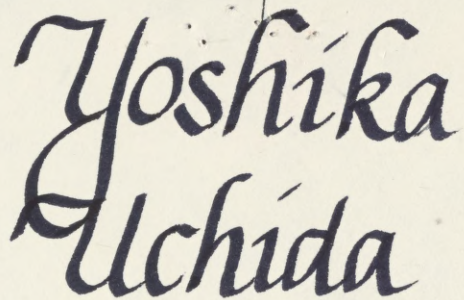 Yoshika
Uchida